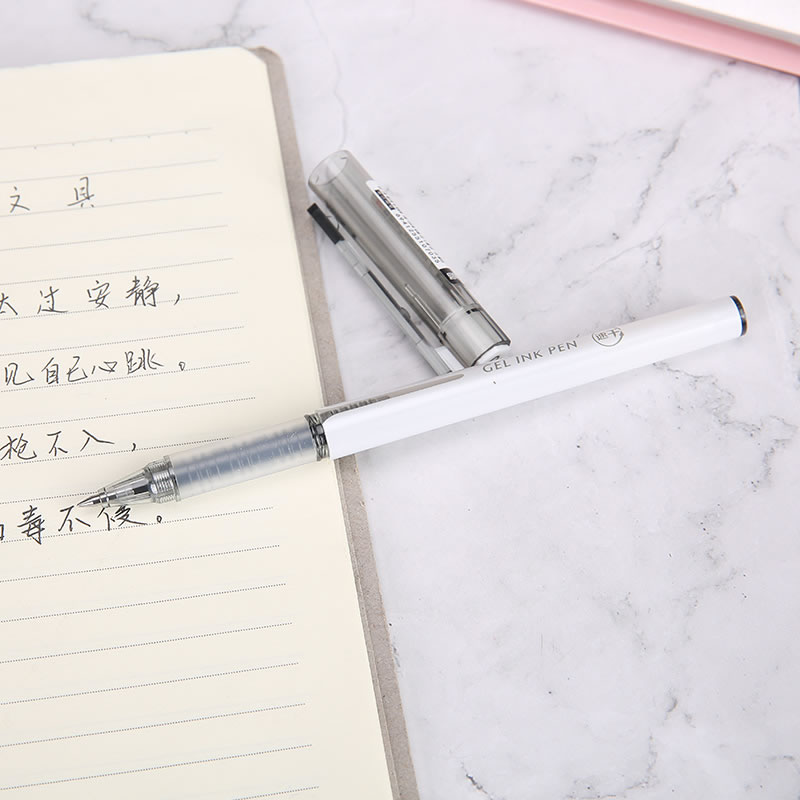 文具
太过安静，
见自己心跳。
枪不入，
毒不侵。
GEL INK PEN 速干
6941255107035